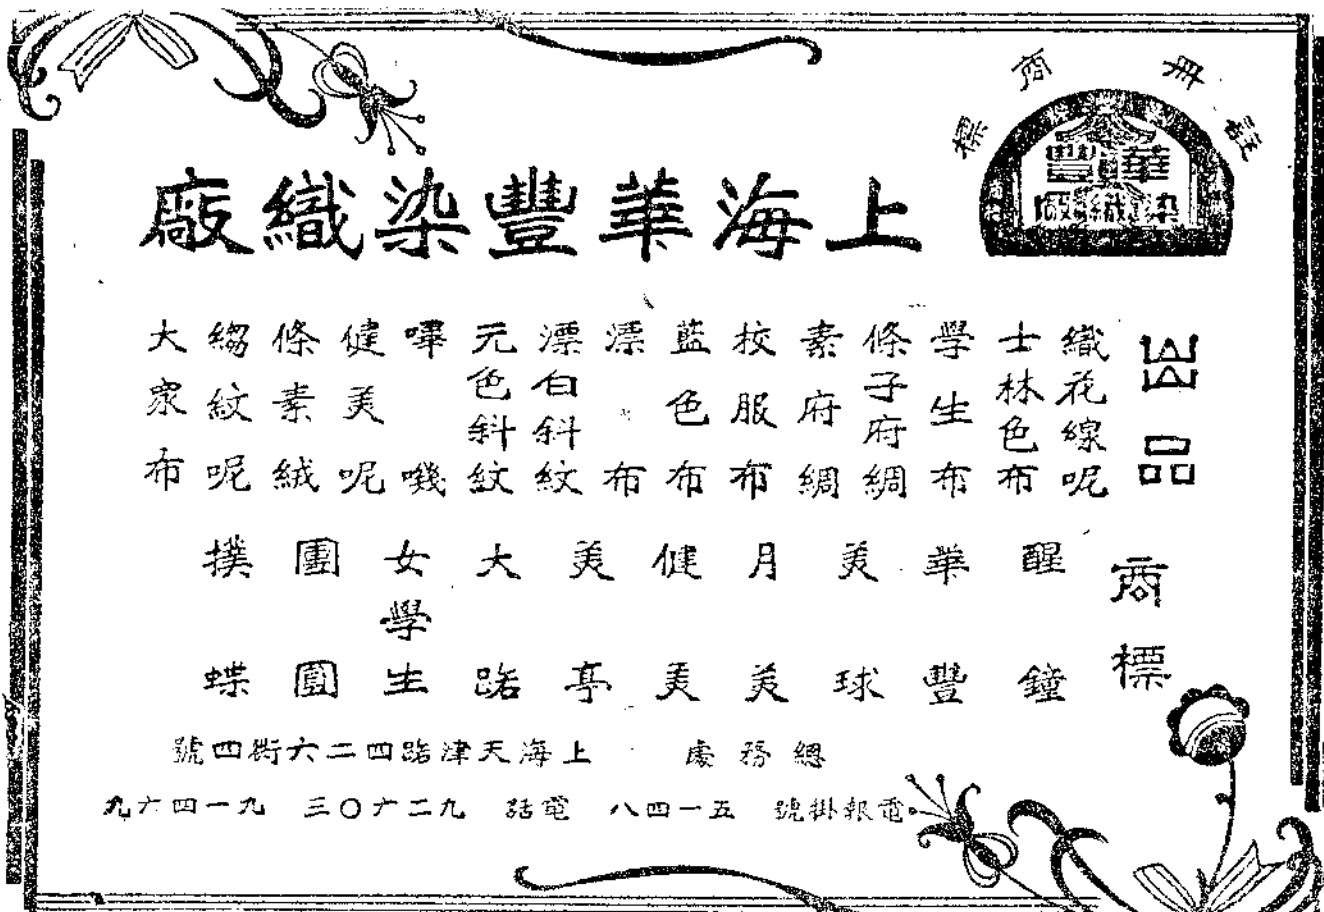 註冊商標
華豐
染織廠
上海華豐染織廠
出品
織花線呢
士林色布
學生布
條子府綢
素府綢
校服布
藍色布
漂布
漂白斜紋
元色斜紋
嗶嘰
健美呢
條素絨
縐紋呢
大眾布
商標
醒鐘
華豐
美球
月美
健美
美亭
大路
女學生
團圓
撲蝶
總務處 上海天津路四二六衖四號
電報掛號 五一四八 電話 九二六〇三 九一四六九